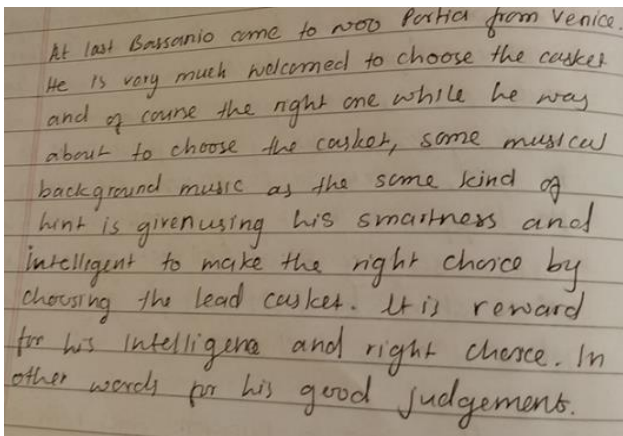 At last Bassanio come to woo Portia from Venice.
He is very much welcomed to choose the casket
and of course the right one while he way
about to choose the casket, some musical
background music as the some kind of
hint is given using his smartness and
intelligent to make the right choice by
choosing the lead casket. It is reward
for his intelligence and right choice. In
other words for his good judgement.